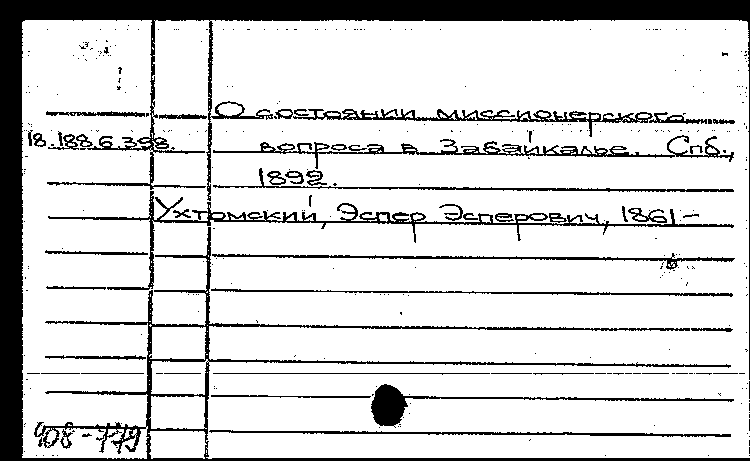 О состоянии миссионерского
18.188.6.398.
вопроса в Забайкалье. Спб.,
1892.
Ухтомский, Эспер Эсперович, 1861-
908-779